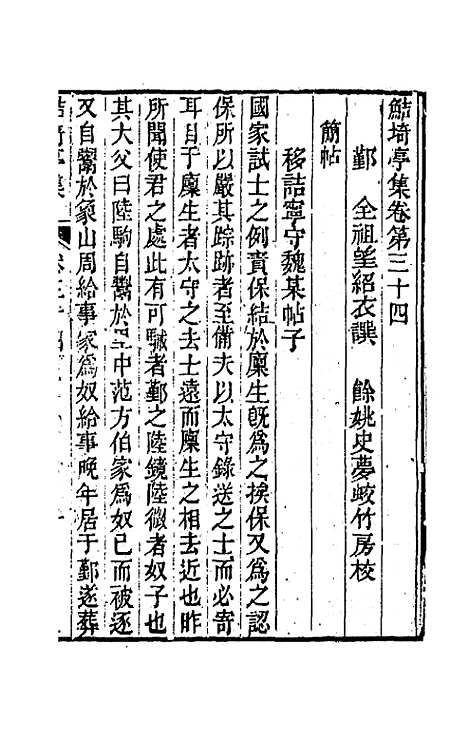 鮚埼亭集卷第三十四
鄞　全祖望紹衣譔　餘姚史夢蛟竹房校
簡帖
移詰寧守魏某帖子
國家試士之例責保結於廩生旣爲之挨保又爲之認
保所以嚴其踪跡者至備夫以太守錄送之士而必寄
耳目于廩生者太守之去士遠而廩生之相去近也昨
所聞使君之處此有可駴者鄞之陸鏡陸微者奴子也
其大父曰陸駒自鬻於中范方伯家爲奴已而被逐
又自鬻於象山周給事家爲奴給事晚年居于鄞遂葬
鮚埼亭集